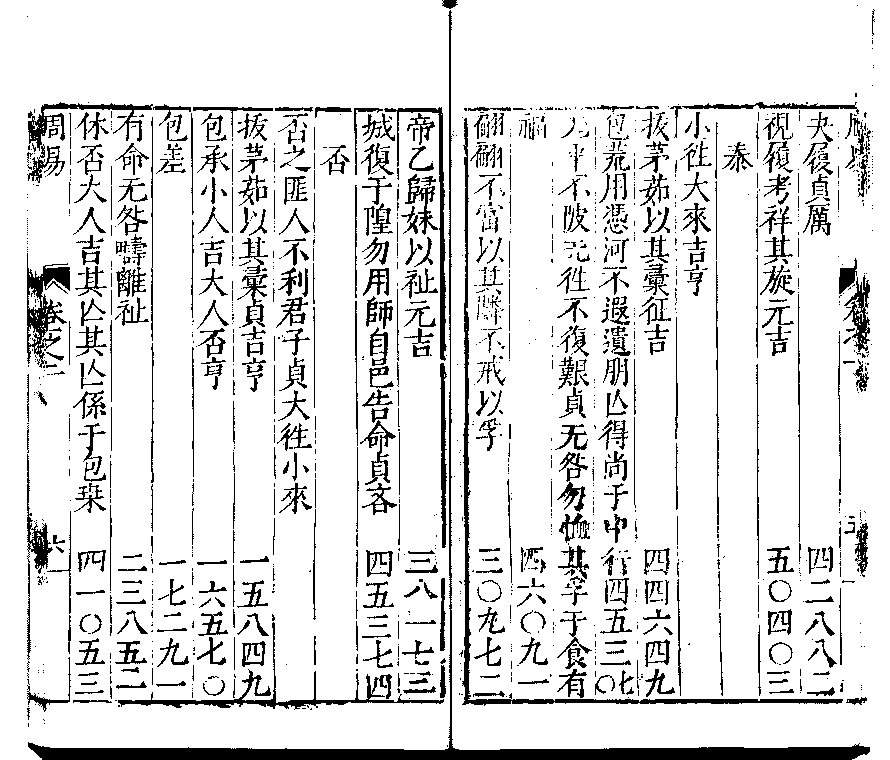 夬履貞厲 四二八八二
視履考祥其旋元吉 五〇四〇三
泰
小徃大來吉亨
拔茅茹以其彙征吉 四四六四九
包荒用馮河不遐遺朋亾得尚于中行 四五三〇七
无平不陂无徃不復艱貞无咎勿恤其孚于食有
福 四六〇九一
翩翩不富以其隣不戒以孚 三〇九七二
帝乙歸妹以祉元吉 三八一七三
城復于隍勿用師自邑告命貞吝 四五三七四
否
否之匪人不利君子貞大徃小來
拔茅茹以其彙貞吉亨 一五八四九
包承小人吉大人否亨 一六五七〇
包羞 一七二九一
有命无咎疇離祉 二三八五二
休否大人吉其亾其亾係于包桒 四一〇五三
周易 卷之二 六